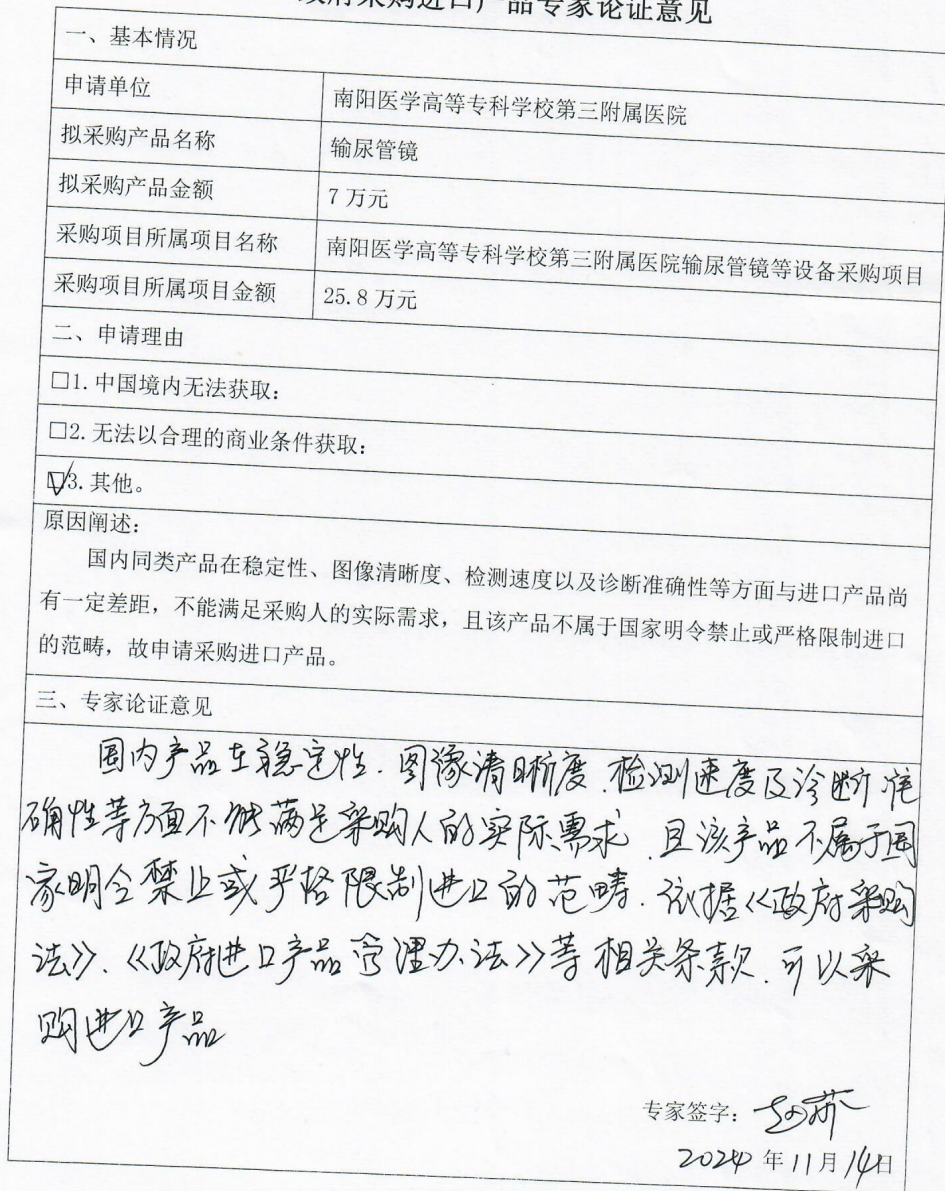 政府采购进口产品专家论证意见
一、基本情况
申请单位 南阳医学高等专科学校第三附属医院
拟采购产品名称 输尿管镜
拟采购产品金额 7 万元
采购项目所属项目名称 南阳医学高等专科学校第三附属医院输尿管镜等设备采购项目
采购项目所属项目金额 25.8 万元
二、申请理由
□1. 中国境内无法获取：
□2. 无法以合理的商业条件获取：
☑3. 其他。
原因阐述：
国内同类产品在稳定性、图像清晰度、检测速度以及诊断准确性等方面与进口产品尚
有一定差距，不能满足采购人的实际需求，且该产品不属于国家明令禁止或严格限制进口
的范畴，故申请采购进口产品。
三、专家论证意见
国内产品在稳定性、图像清晰度、检测速度及诊断准
确性等方面不能满足采购人的实际需求、且该产品不属于国
家明令禁止或严格限制进口的范畴、依据《政府采购
法》、《政府进口产品管理办法》等相关条款、可以采
购进口产品
专家签字：
2024 年 11 月 14 日